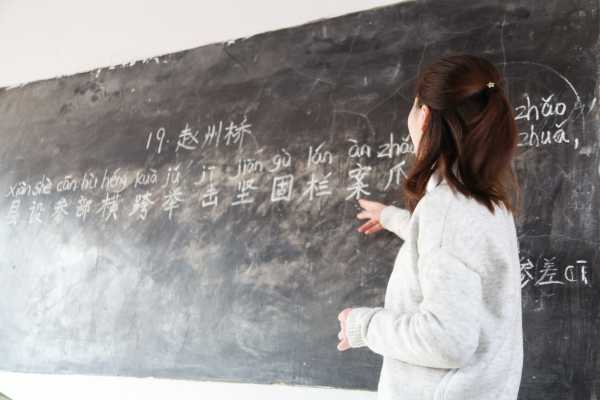 19. 赵州桥
zhǎo
zhuǎ,
xiàn shè cān bù héng kuà jǔ jī jiān gù lán àn zhǎo
县设参部横跨举击坚固栏案爪
参差cī